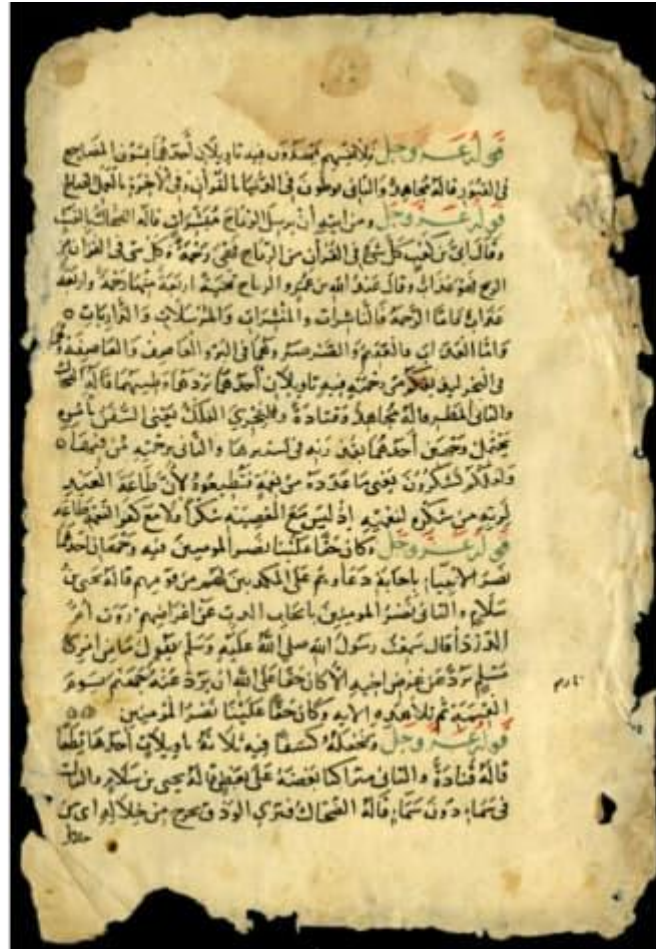 قوله عز وجل فلانفسهم يمهدون فيه تاويلان أحدهما يسوون المضاجع
في القبور قاله مجاهد والثاني يوطئون في الدنيا بالقرآن وفي الآخرة بالعمل الصالح
قوله عز وجل ومن آياته أن يرسل الرياح مبشرات قاله الضحاك بالغيث
وقال أبي بن كعب كل شئ في القرآن من الرياح فهي رحمة وكل شئ في القرآن من
الريح فهو عذاب وقال عبد الله بن عمرو الرياح ثمانية أربعة منها رحمة وأربعة
عذاب فأما الرحمة فالناشرات والمبشرات والمرسلات والذاريات
وأما العذاب فالعقيم والصرصر وهما في البر والعاصف والقاصف وهما
في البحر ليذيقكم من رحمته فيه تاويلان أحدهما بردها وطيبها قاله الضحاك
والثاني المطر قاله مجاهد وقتادة ولتجري الفلك يعني السفن بأمره
يحتمل وجهين أحدهما بقدرته في تسييرها والثاني برحمته لمن فيها
ولعلكم تشكرون يعني ما عدده من نعمه فتطيعوه لأن طاعة العبد
لربه من شكره لنعمته إذ ليس مع المعصية شكر ولا مع كفر النعمة طاعة
قوله عز وجل وكان حقا علينا نصر المومنين فيه وجهان أحدهما
نصر الأنبياء بإجابة دعاوهم على المكذبين لهم من قومهم قاله يحيى بن
سلام والثاني نصر المومنين بايجاب الذب عن أعراضهم روت أم
الدرداء قال سمعت رسول الله صلى الله عليه وسلم يقول ما من امرئ
مسلم يرد عن عرض أخيه إلا كان حقا على الله أن يرد عنه جهنم يوم
القيمة ثم تلا هذه الآية وكان حقا علينا نصر المومنين
قوله عز وجل ويجعله كسفا فيه ثلاثة تاويلات أحدها قطعا
قاله قتادة والثاني متراكبا بعضه على بعض قاله يحيى بن سلام والثالث
في سماء دون سماء قاله الضحاك فترى الودق يخرج من خلاله أي من
خلال